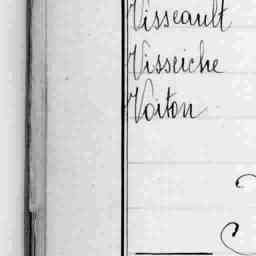 Visseault
Visseiche
Voiton